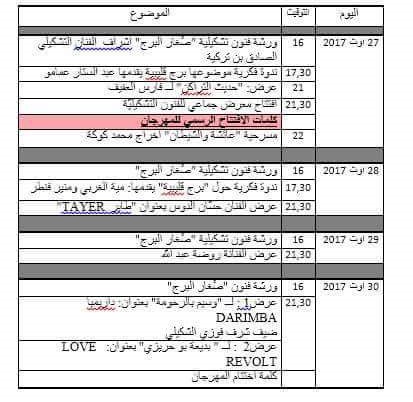 اليوم التوقيت الموضوع
27 اوت 2017 16 ورشة فنون تشكيلية "صُغار البرج" اشراف الفنان التشكيلي
الصادق بن تركية
17,30 ندوة فكرية موضوعها برج قليبية يقدمها عبد الستار عمامو
21 عرض: "حديث التراكن" لــ فارس العفيف
21,30 افتتاح معرض جماعي للفنون التشكيليّة
كلمات الافتتاح الرسمي للمهرجان
22 مسرحية "عائشة والشيطان" اخراج محمد كوكة
28 اوت 2017 16 ورشة فنون تشكيلية "صُغار البرج"
17,30 ندوة فكرية حول "برج قليبية" يقدمها: مية الغربي ومنير فنطر
21,30 عرض الفنان حسّان الدوس بعنوان "طاير TAYER"
29 اوت 2017 16 ورشة فنون تشكيلية "صُغار البرج"
21,30 عرض الفنانة روضة عبد الله
30 اوت 2017 16 ورشة فنون "صُغار البرج"
21,30 عرض1 : لــ "وسيم بالرحومة" بعنوان: داريمبا
DARIMBA
ضيف شرف فوزي الشكيلي
عرض2 : لــ " بديعة بو حريزي" بعنوان: LOVE
REVOLT
كلمة اختتام المهرجان